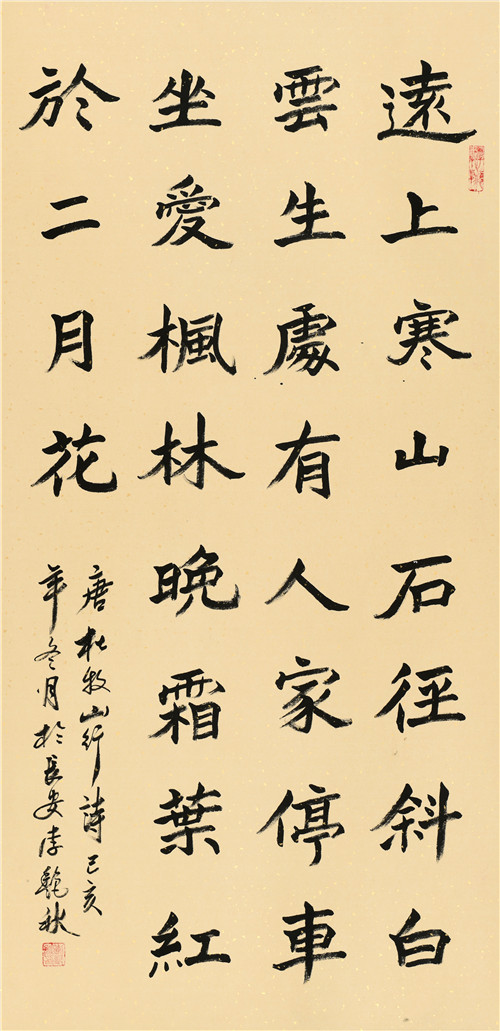 遠上寒山石徑斜白
雲生處有人家停車
坐愛楓林晚霜葉紅
於二月花
唐杜牧山行詩己亥
年冬月於長安李艷秋